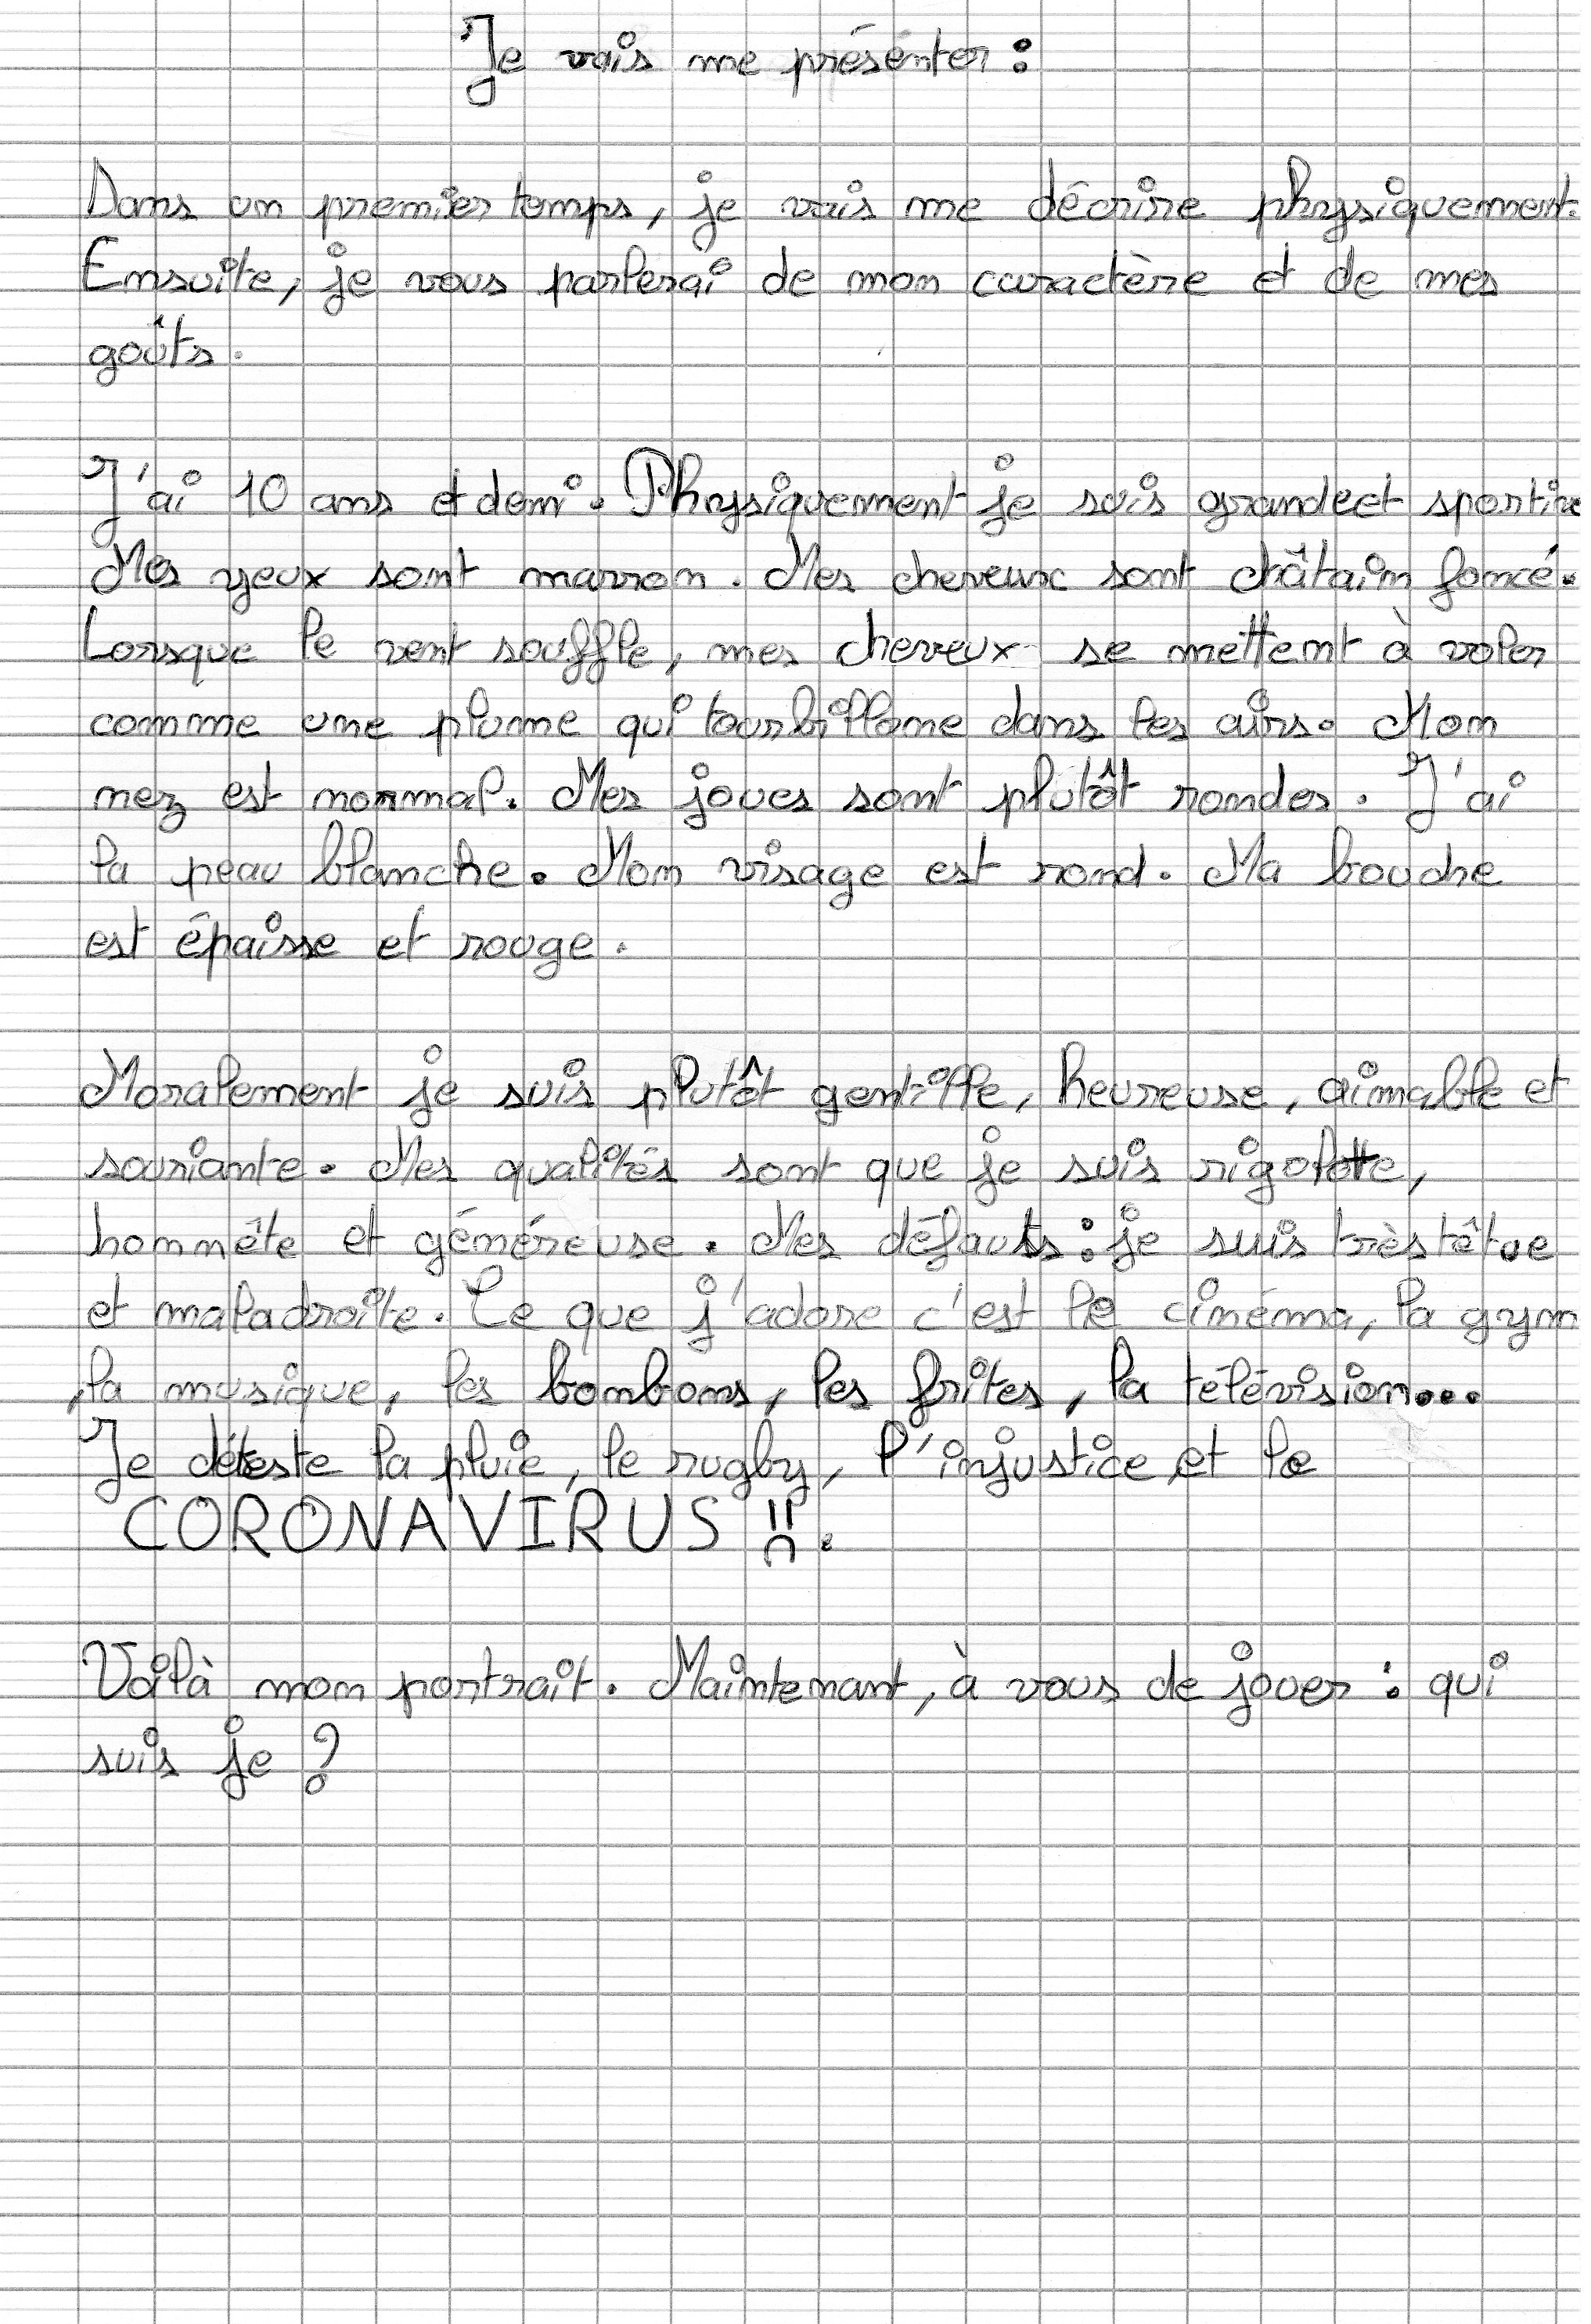 Je vais me présenter :
Dans un premier temps, je vais me décrire physiquement.
Ensuite, je vous parlerai de mon caractère et de mes
goûts.
J'ai 10 ans et demi. Physiquement je suis grande et sportive
Mes yeux sont marron. Mes cheveux sont châtain foncé.
Lorsque le vent souffle, mes cheveux se mettent à voler
comme une plume qui tourbillone dans les airs. Mon
nez est normal. Mes joues sont plutôt rondes. J'ai
la peau blanche. Mon visage est rond. Ma bouche
est épaisse et rouge.
Moralement je suis plutôt gentille, heureuse, aimable et
souriante. Mes qualités sont que je suis rigolotte,
honnête et généreuse. Mes défauts : je suis très têtue
et maladroite. Ce que j'adore c'est le cinéma, la gym
, la musique, les bonbons, les frites, la télévision...
Je déteste la pluie, le rugby, l'injustice et le
CORONAVIRUS :(.
Voilà mon portrait. Maintenant, à vous de jouer : qui
suis je ?